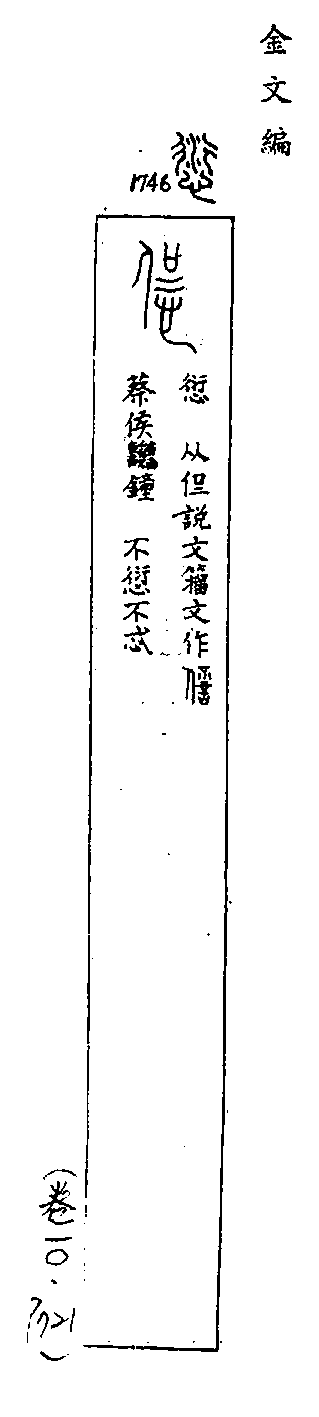 金文編
1746
愆 从侃說文籀文作𠎝
蔡侯鐘 不愆不忒
(卷一〇·721)